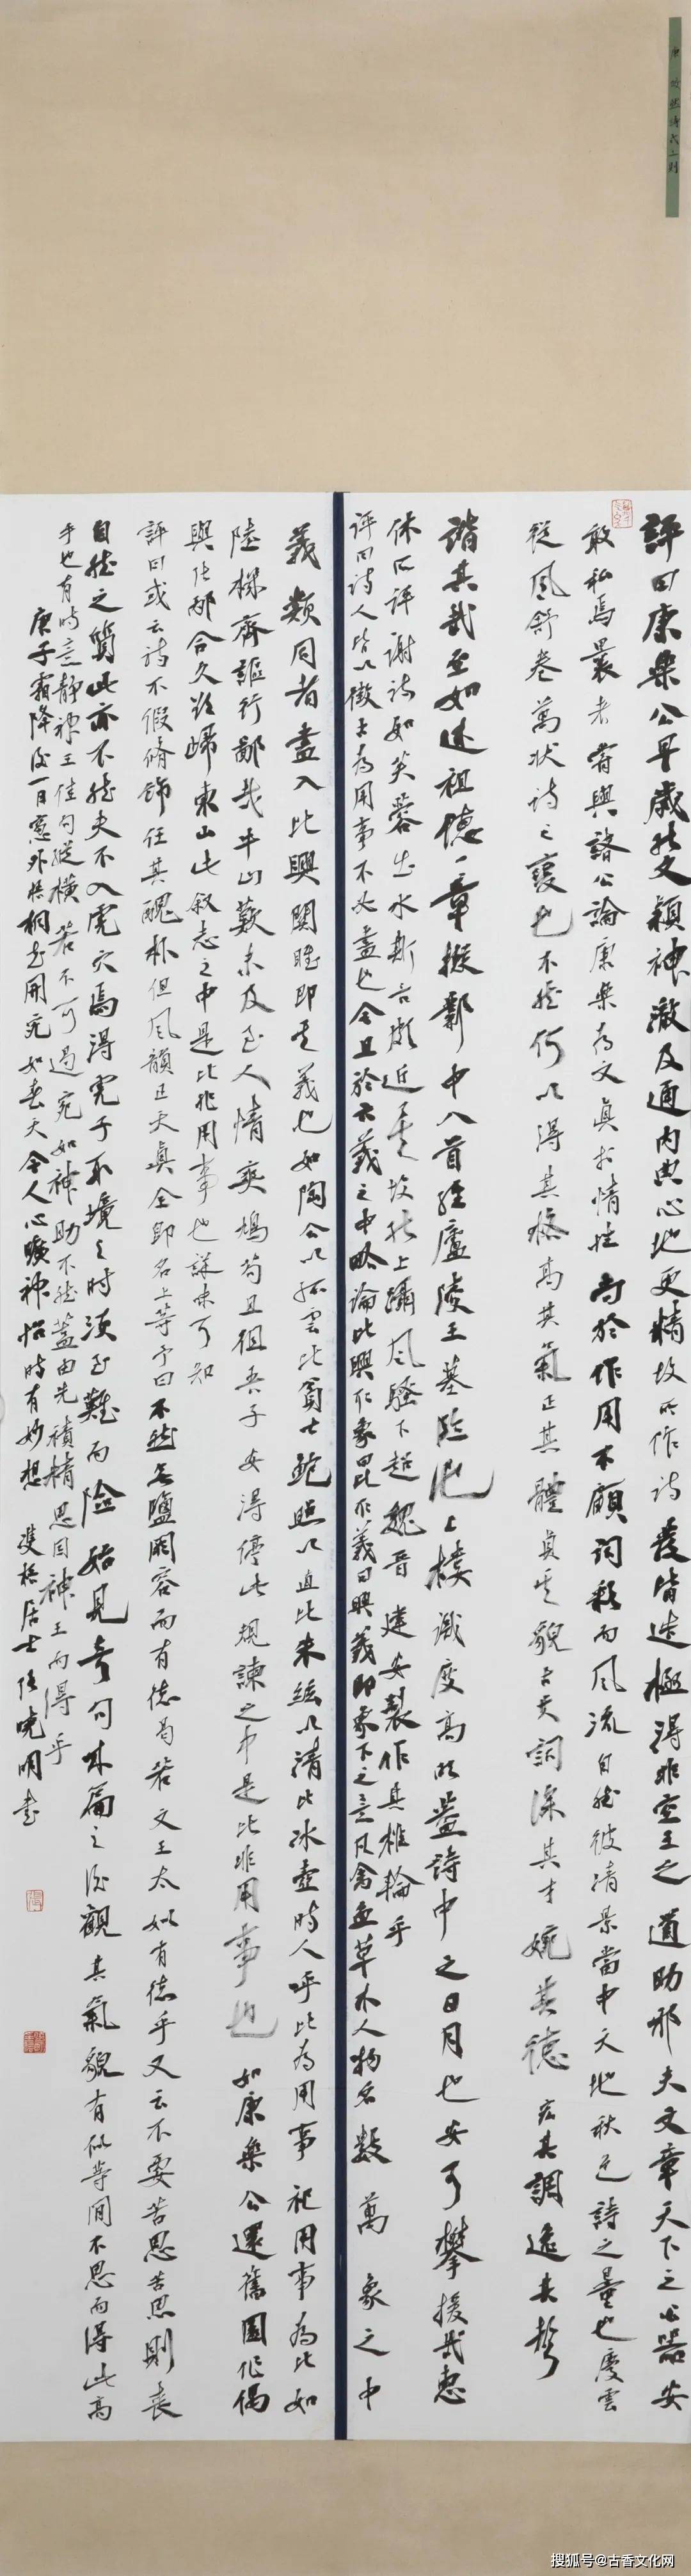 唐 皎然诗式三则
評曰康樂公早歲能文穎神澈及通內典心地更精故所作詩發皆造極得非空王之道助邪夫文章天下之公器安
敢私焉曩者嘗與諸公論康樂為文真於情性尚於作用不顧詞彩而風流自然彼清景當中天地秋色詩之量也慶雲
從風舒卷萬狀詩之變也不然何以得其格高其氣正其體貞其貌古其詞深其才婉其德宏其調逸其聲
諧其哉至如述祖德一章擬鄴中八首經廬陵王墓臨池上樓識度高明蓋詩中之日月也安可攀援哉惠
休所評謝詩如芙蓉出水斯言頗近矣故能上躡風騷下超魏晉建安製作其椎輪乎
評曰詩人皆以徵古為用事不必盡也今且於六義之中略論比興取象曰比取義曰興義即象下之意凡禽魚草木人物名數萬象之中
義類同者盡入比興關雎即其義也如陶公以孤雲比貧士鮑照以直比朱絲以清比冰壺時人呼比為用事呼用事為比如
陸機齊謳行鄙哉牛山歎未及至人情爽鳩苟且徂吾子安得停此規諫之中是比非用事也如康樂公還舊園作偶
與張邴合久欲歸東山此叙志之中是比非用事也詳味可知
評曰或云詩不假修飾任其醜朴但風韻正天真全即名上等予曰不然無鹽闕容而有德曷若文王太姒有德乎又云不要苦思苦思則喪
自然之質此亦不然夫不入虎穴焉得虎子取境之時須至難而險始見奇句成篇之後觀其氣貌有似等閒不思而得此高
手也有時意靜神王佳句縱橫若不可遏宛如神助不然蓋由先積精思因神王而得乎
庚子霜降後一日窗外梧桐花開宛如春天令人心曠神怡時有妙想 雙橋居士張曉明書
搜狐号@古香文化网